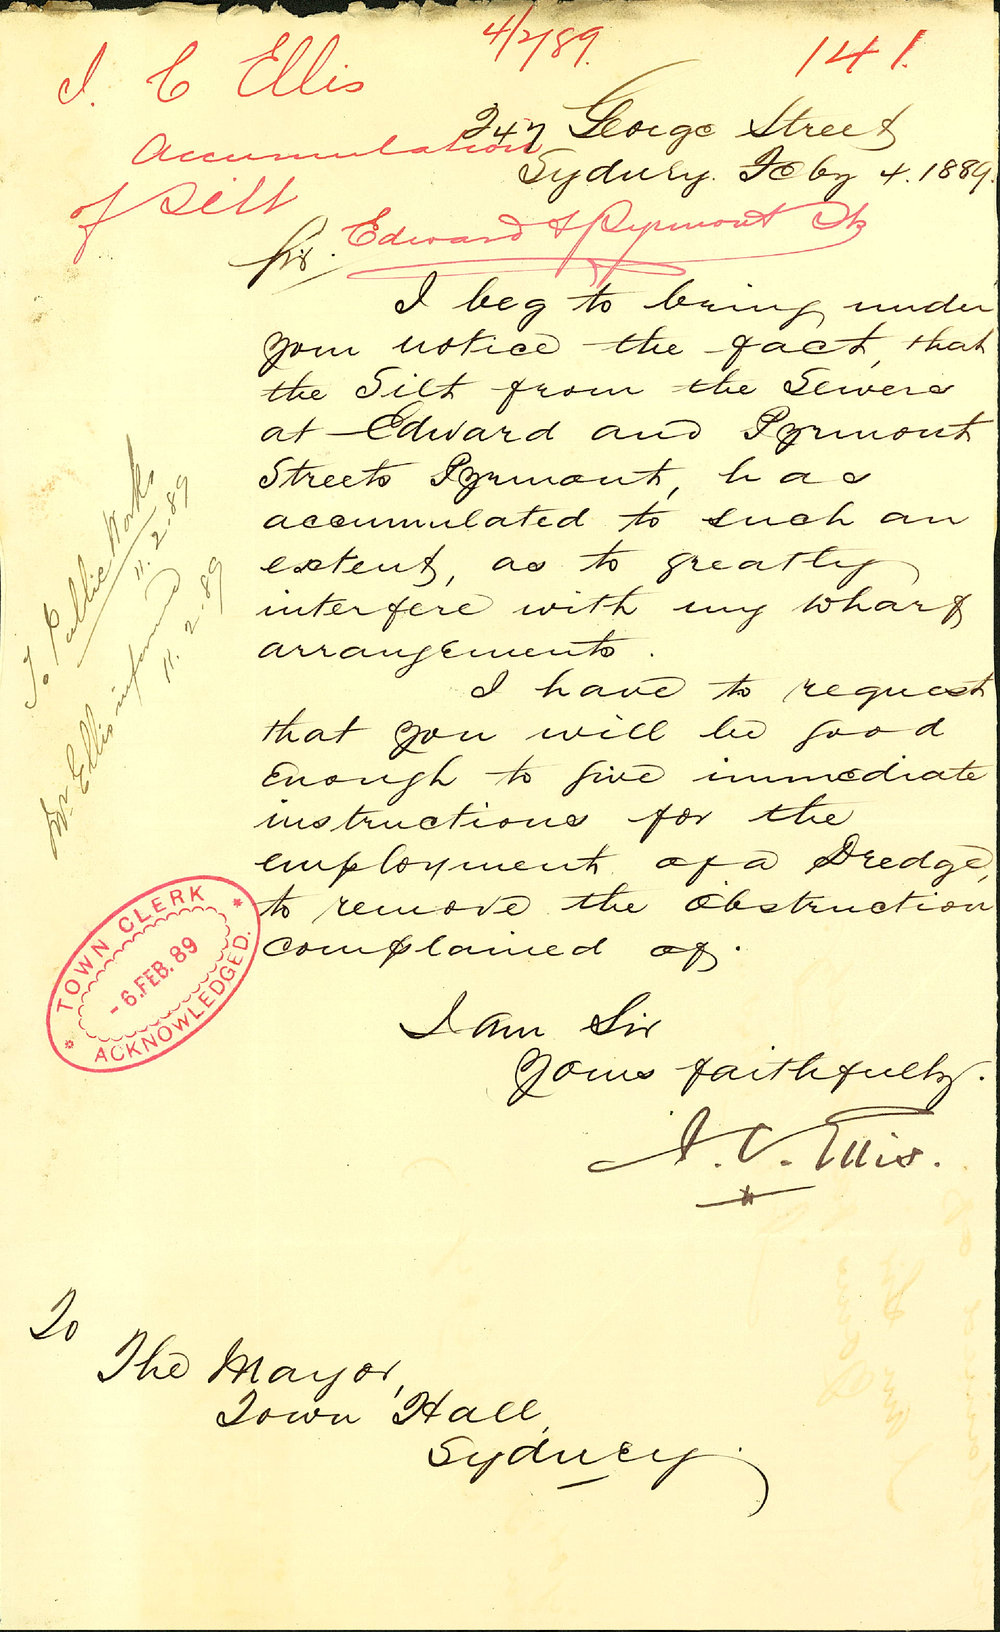 4/2/89.
141.
J. C Ellis
Accumulation
of Silt
Edward & Pyrmont Sts
247 George Street
Sydney. Feby 4. 1889.
Sir.
I beg to bring under
your notice the fact, that
the Silt from the Sewers
at Edward and Pyrmont
Streets Pyrmont, has
accumulated to such an
extent, as to greatly
interfere with my Wharf
arrangements.
I have to request
that you will be good
Enough to give immediate
instructions for the
employment of a Dredge,
to remove the Obstruction
complained of.
I am Sir
Yours faithfully.
J. C. Ellis.
To Public Works
11.2.89
Mr Ellis informed
11.2.89
TOWN CLERK
- 6. FEB. 89
ACKNOWLEDGED.
To
The Mayor,
Town Hall,
Sydney.